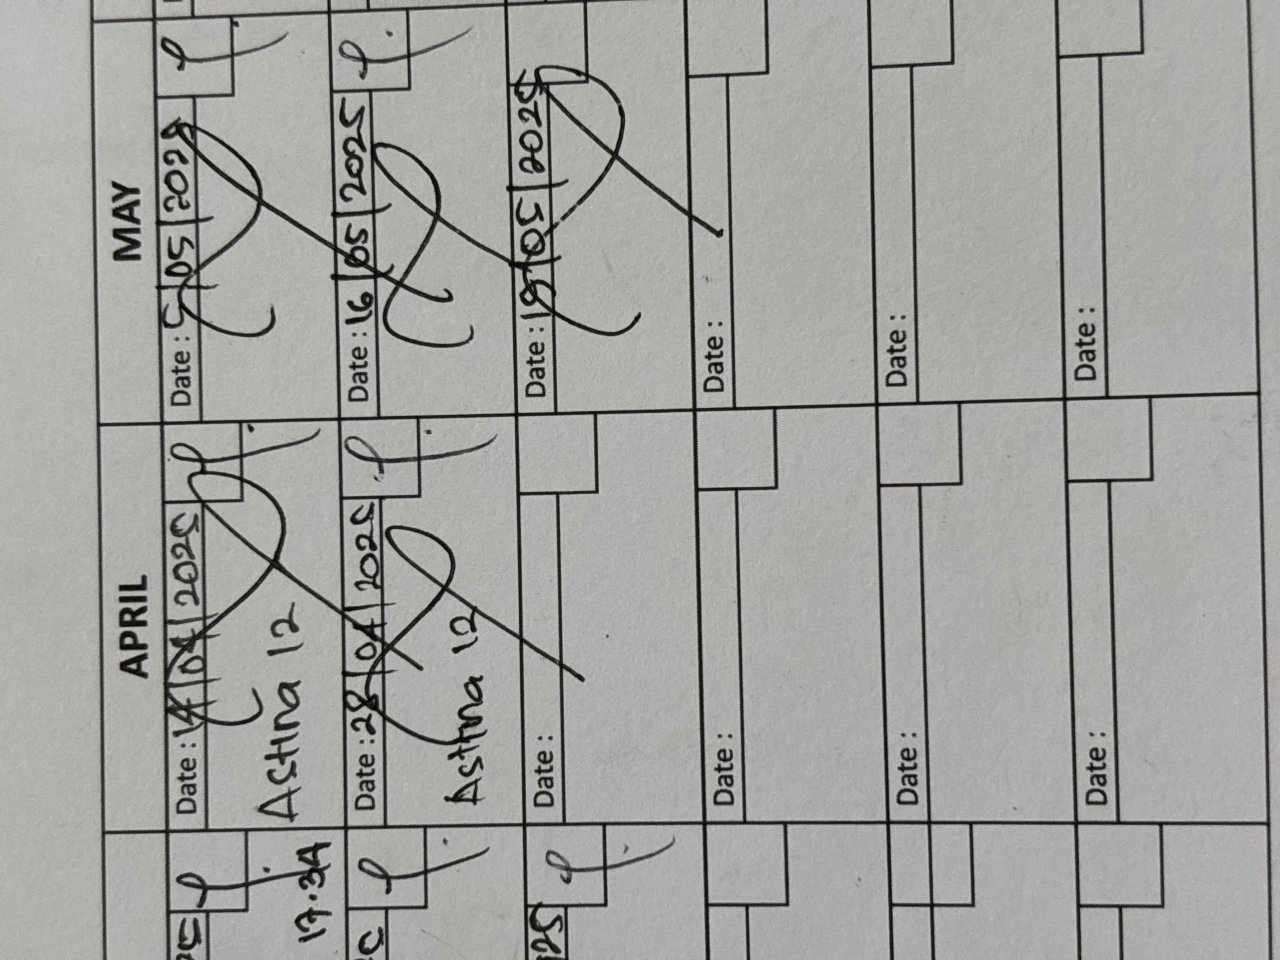 APRIL
MAY
Date : 14/04/2025
Date : 5/05/2025
17.34
Astina 12
Date : 28/04/2025
Date : 16/05/2025
Astina 12
25
Date :
Date : 19/05/2025
Date :
Date :
Date :
Date :
Date :
Date :